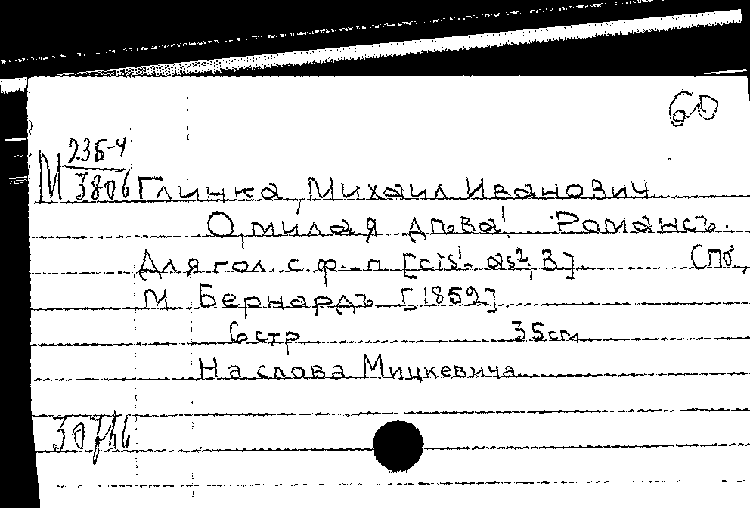 60
М 23Б-4
3806 Глинка, Михаил Иванович
О, милая дѣва! Романсъ.
Для гол. с ф-п [cis¹-as², 3] СПб,
М. Бернардъ [1852]
6 стр 35см
На слова Мицкевича